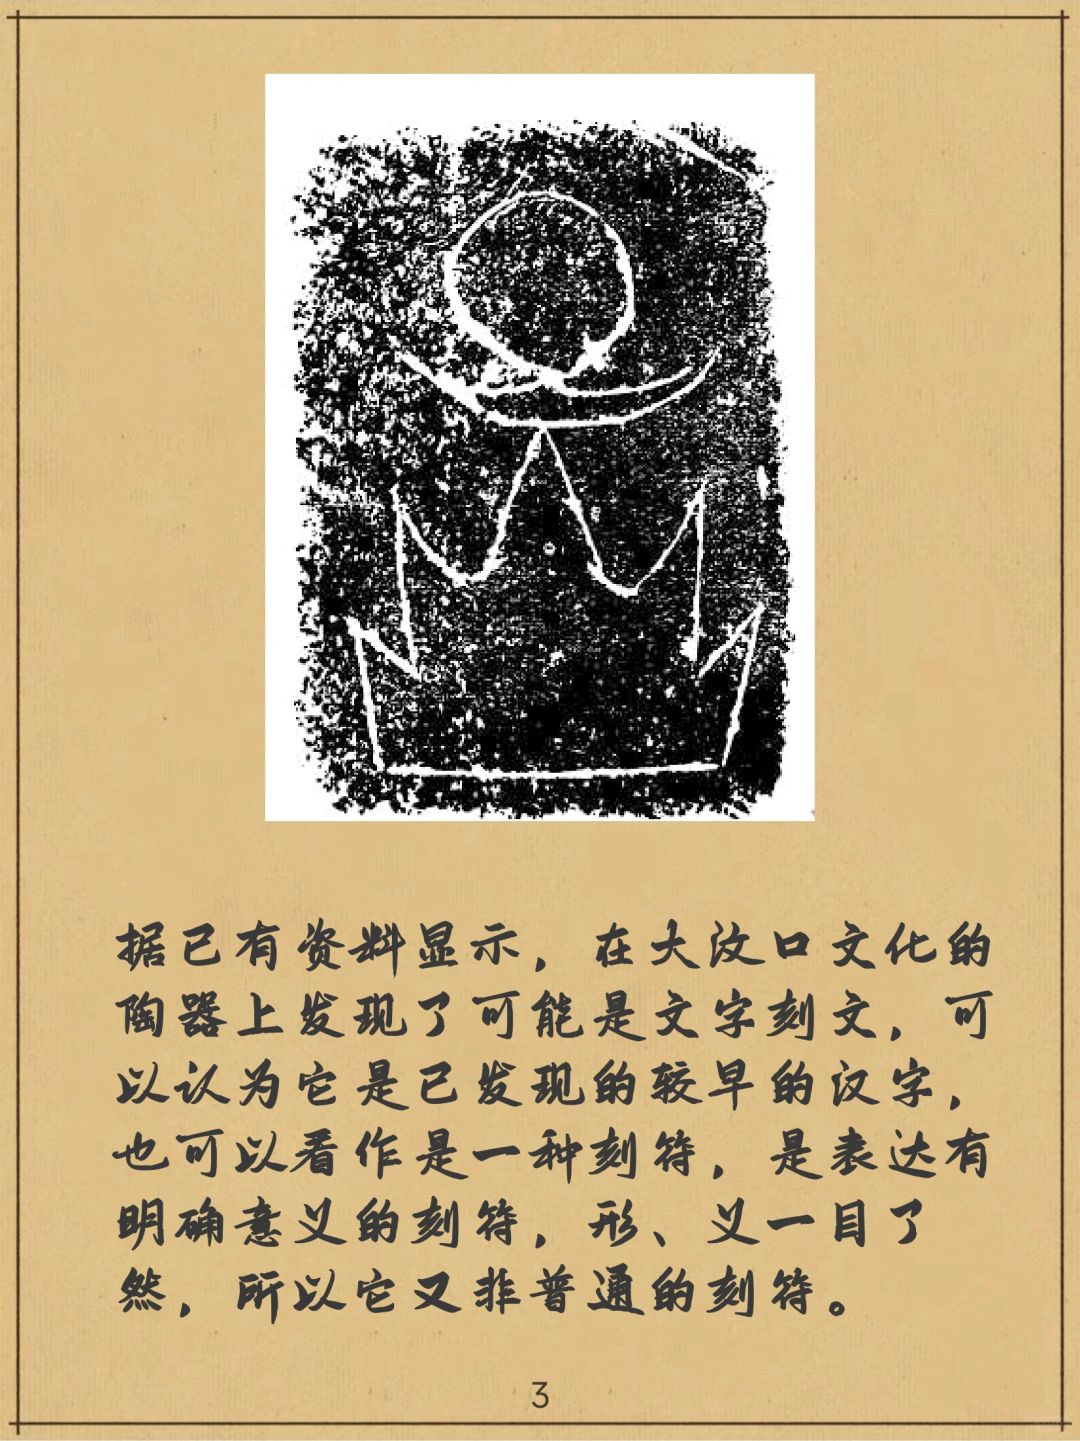 据已有资料显示，在大汶口文化的
陶器上发现了可能是文字刻文，可
以认为它是已发现的较早的汉字，
也可以看作是一种刻符，是表达有
明确意义的刻符，形、义一目了
然，所以它又非普通的刻符。
3